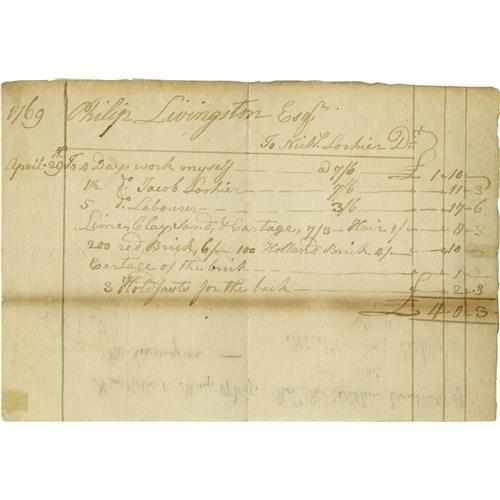 1769 Philip Livingston Esqr.
To Nichs. Loshier Dr.
April 29th To 4 Days work myself — a 7/6 — £ 1 „ 10 „
1½ do. Jacob Loshier — 7/6 — „ 11 „ 3
5 do. Labourer — 3/6 — „ 17 „ 6
Lime, Clay, Sand, & Cartage, 7/3 — Hair 1/ — „ 8 „ 3
200 red Brick, 6/ — 100 Holland Brick 4/ — „ 10 „
Cartage of the brick — „ 1
3 Holdfasts for the back — £ „ 2 „ 3
£ 4 „ 0 „ 3